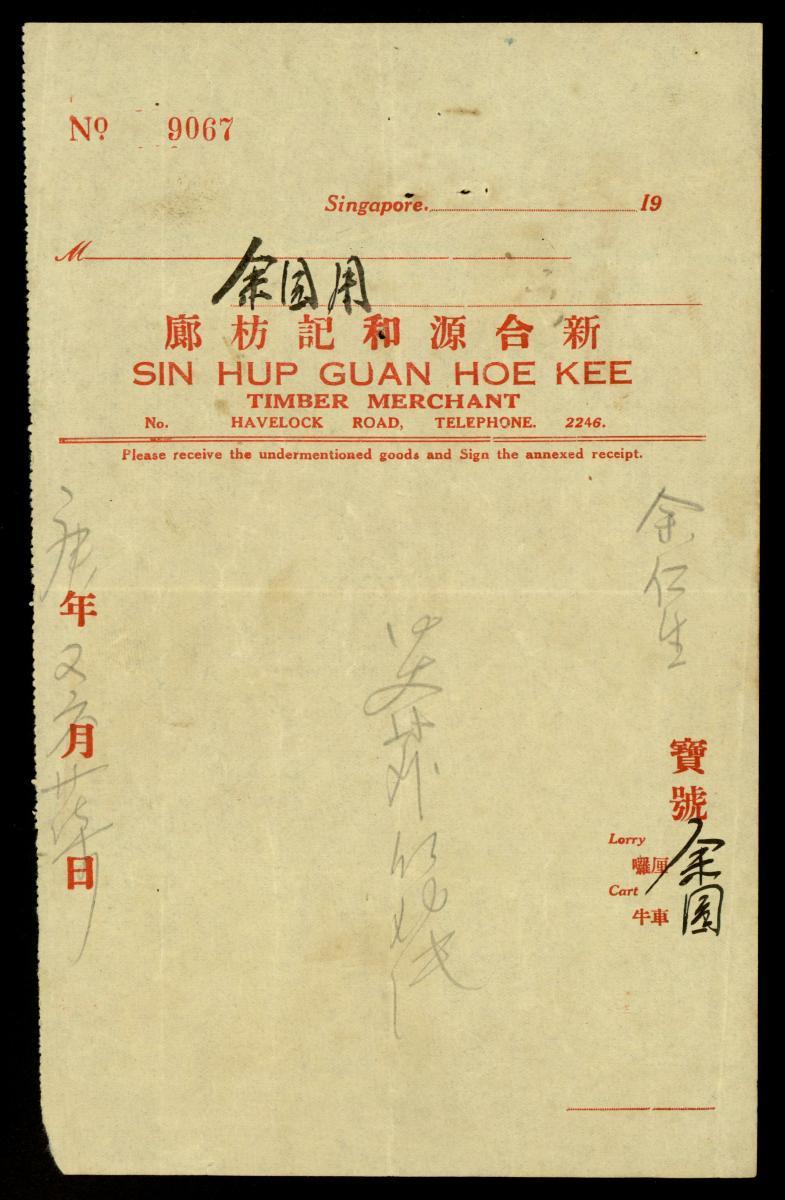 Nº 9067
Singapore. 19
M
余園用
廊枋記和源合新
SIN HUP GUAN HOE KEE
TIMBER MERCHANT
No. HAVELOCK ROAD, TELEPHONE. 2246.
Please receive the undermentioned goods and Sign the annexed receipt.
余仁生
寶號
余園
Lorry
囉厘
Cart
牛車
庚年
月
日